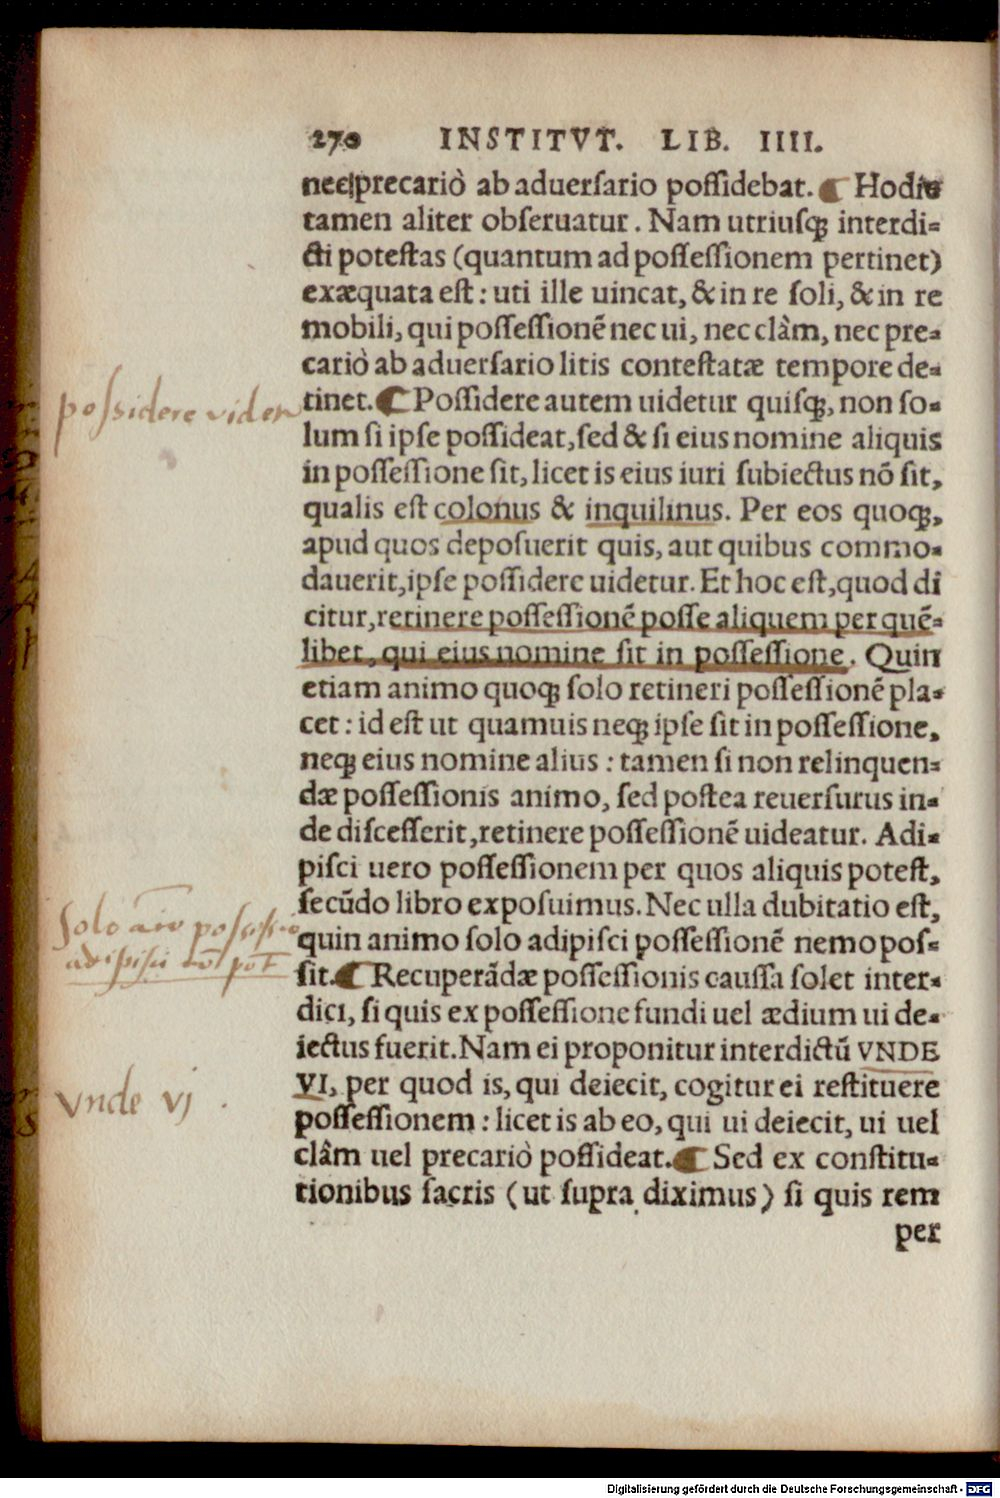 270 INSTITVT. LIB. IIII.
nec precariò ab aduersario possidebat. ¶ Hodie
tamen aliter obseruatur. Nam utriusq; interdi-
cti potestas (quantum ad possessionem pertinet)
exæquata est: uti ille uincat, & in re soli, & in re
mobili, qui possessionē nec ui, nec clàm, nec pre-
cariò ab aduersario litis contestatæ tempore de-
possidere videtur
tinet. ¶ Possidere autem uidetur quisq;, non so-
lum si ipse possideat, sed & si eius nomine aliquis
in possessione sit, licet is eius iuri subiectus nō sit,
qualis est colonus & inquilinus. Per eos quoq;,
apud quos deposuerit quis, aut quibus commo-
dauerit, ipse possidere uidetur. Et hoc est, quod di
citur, retinere possessionē posse aliquem per quē-
libet, qui eius nomine sit in possessione. Quin
etiam animo quoq; solo retineri possessionē pla-
cet: id est ut quamuis neq; ipse sit in possessione,
neq; eius nomine alius: tamen si non relinquen-
dæ possessionis animo, sed postea reuersurus in-
de discesserit, retinere possessionē uideatur. Adi-
pisci uero possessionem per quos aliquis potest,
secūdo libro exposuimus. Nec ulla dubitatio est,
Solo aīo possessio
adipisci nō pōt
quin animo solo adipisci possessionē nemo pos-
sit. ¶ Recuperādæ possessionis caussa solet inter-
dici, si quis ex possessione fundi uel ædium ui de-
iectus fuerit. Nam ei proponitur interdictū VNDE
vnde vj
VI, per quod is, qui deiecit, cogitur ei restituere
possessionem: licet is ab eo, qui ui deiecit, ui uel
clâm uel precariò possideat. ¶ Sed ex constitu-
tionibus sacris (ut supra diximus) si quis rem
per
Digitalisierung gefördert durch die Deutsche Forschungsgemeinschaft - DFG